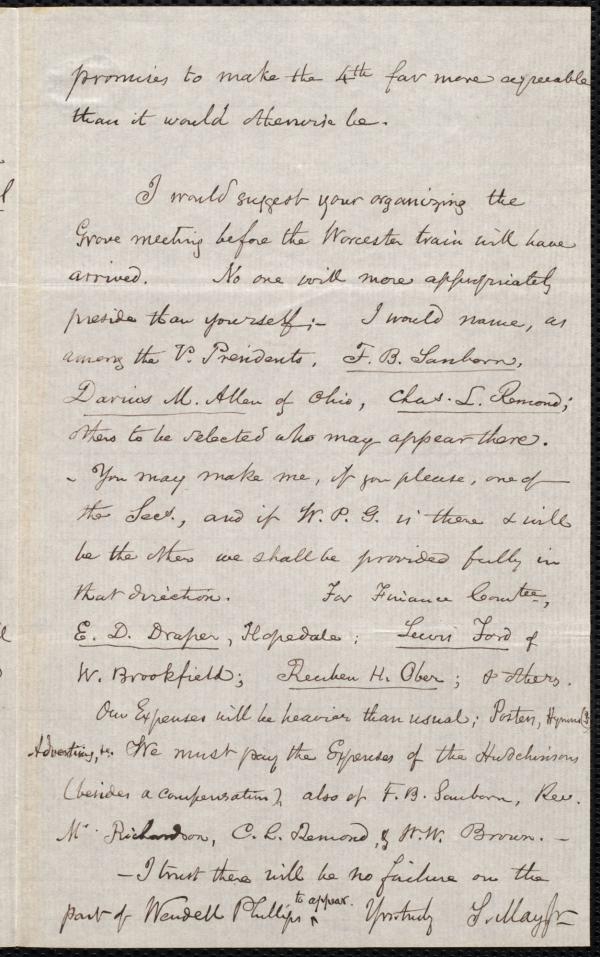 promises to make the 4th far more agreeable
than it would otherwise be.
I would suggest your organizing the
Grove meeting before the Worcester train will have
arrived. No one will more appropriately
preside than yourself;- I would name, as
among the V. Presidents, F. B. Sanborn,
Darius M. Allen of Ohio, Chas. L. Remond;
others to be selected who may appear there.
- You may make me, if you please, one of
the Secs., and if W. P. G. is there & will
be the other we shall be provided fully in
that direction. For Finance Comtee,
E. D. Draper, Hopedale; Lewis Ford of
W. Brookfield; Reuben H. Ober; & others.
Our Expenses will be heavier than usual; Posters, Hymns (?)
Advertising, &c. We must pay the Expenses of the Hutchinsons
(besides a compensation), also of F. B. Sanborn, Rev.
Mr. Richardson, C. L. Remond, & W. W. Brown. -
- I trust there will be no failure on the
part of Wendell Phillips to appear. Yrs truly S. May Jr